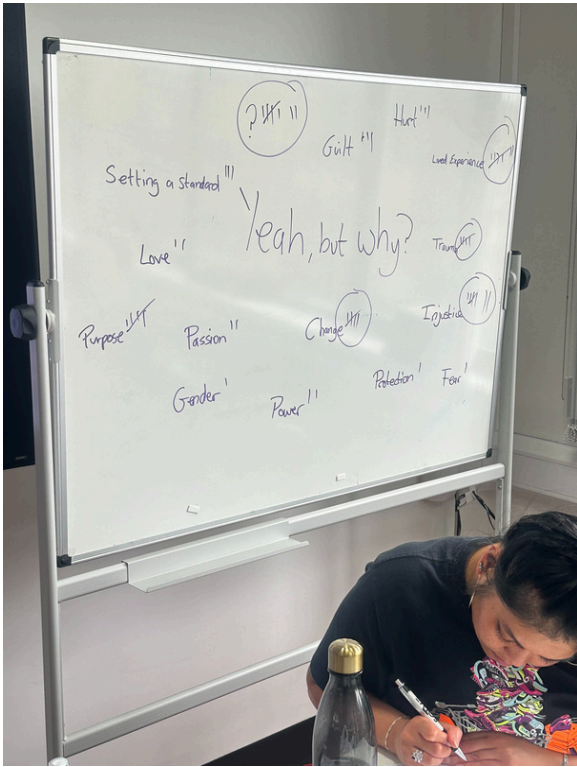 ?
Hurt
Guilt
Lived Experience
Setting a standard
Yeah, but why?
Love
Trauma
Purpose
Passion
Change
Injustice
Gender
Power
Protection
Fear